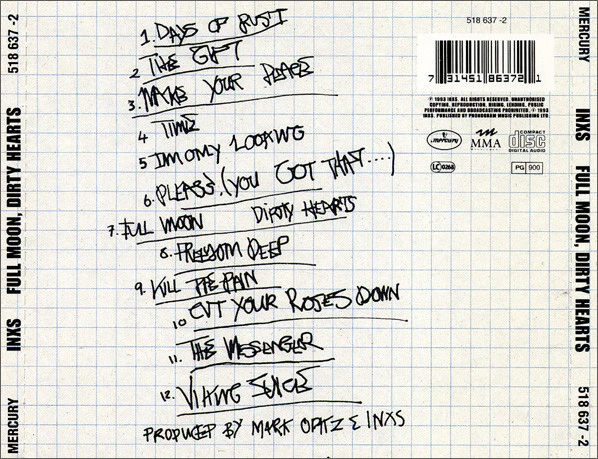 518 637 -2
INXS FULL MOON, DIRTY HEARTS
MERCURY
1. DAYS OF RUST
2 THE GIFT
3. MAKE YOUR PEACE
4 TIME
5 IM ONLY LOOKING
6. PLEASE. (YOU GOT THAT....)
7. FULL MOON DIRTY HEARTS
8. FREEDOM DEEP
9. KILL THE PAIN
10 CUT YOUR ROSES DOWN
11. THE MESSENGER
12. VIKING JUICE
PRODUCED BY MARK OPITZ & INXS
518 637 -2
7 31451 86372 1
℗ 1993 INXS. ALL RIGHTS RESERVED. UNAUTHORISED
COPYING, REPRODUCTION, HIRING, LENDING, PUBLIC
PERFORMANCE AND BROADCASTING PROHIBITED. © 1993
INXS. PUBLISHED BY PHONOGRAM MUSIC PUBLISHING LTD
mercury
MMA
COMPACT
disc
DIGITAL AUDIO
LC 0268
PG 900
MERCURY
INXS FULL MOON, DIRTY HEARTS
518 637 -2